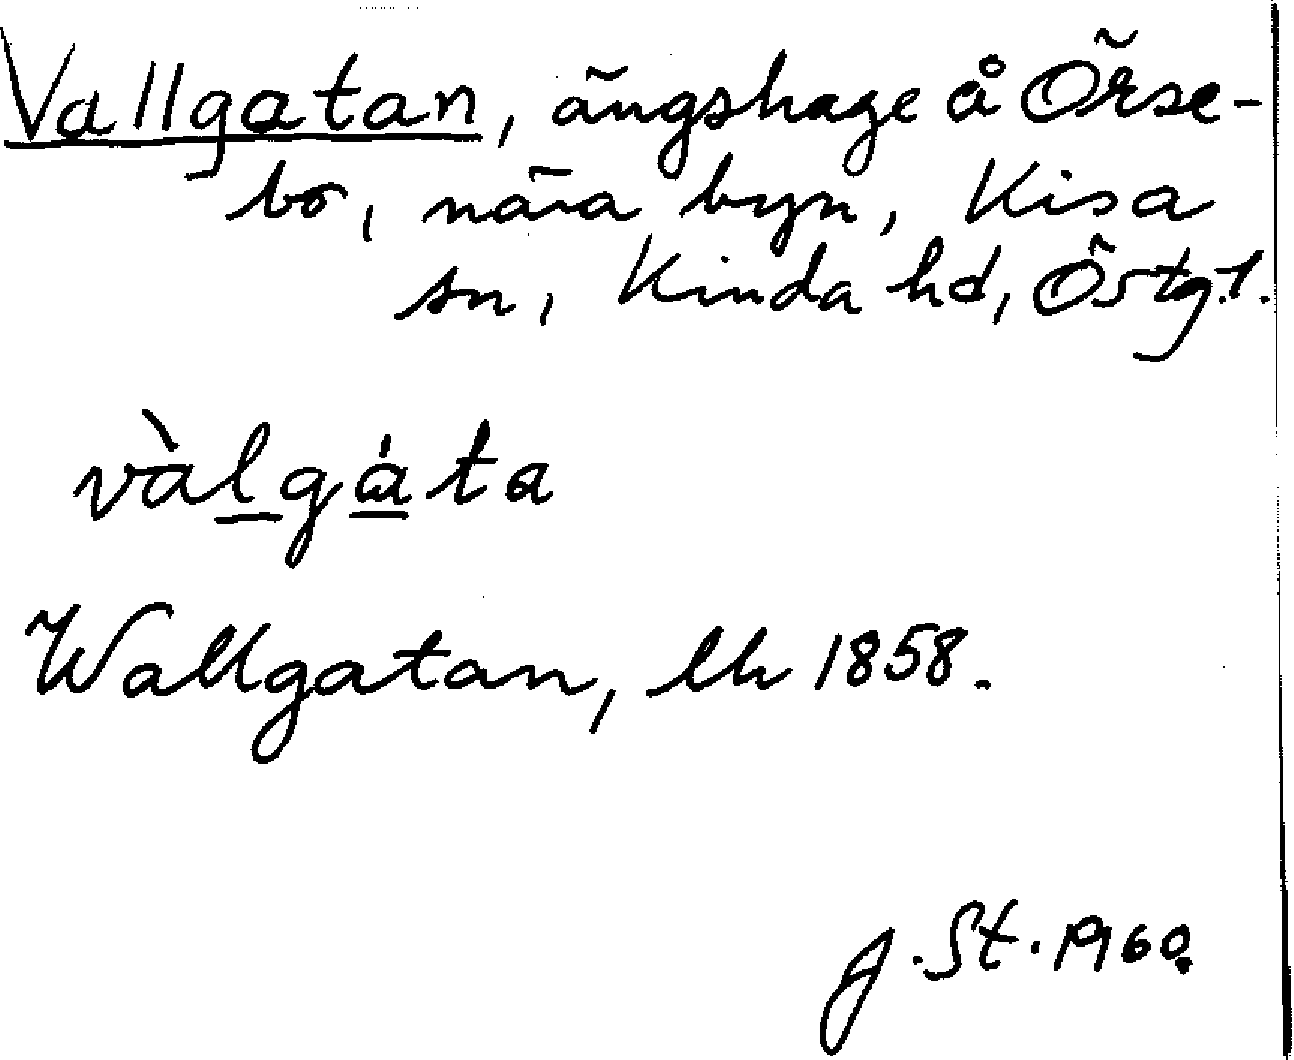 Vallgatan, ängshage å Örse-
bo, nära byn, Kisa
sn, Kinda hd, Östg.l.
vàlgáta
Wallgatan, lk 1858.
J. St. 1960.